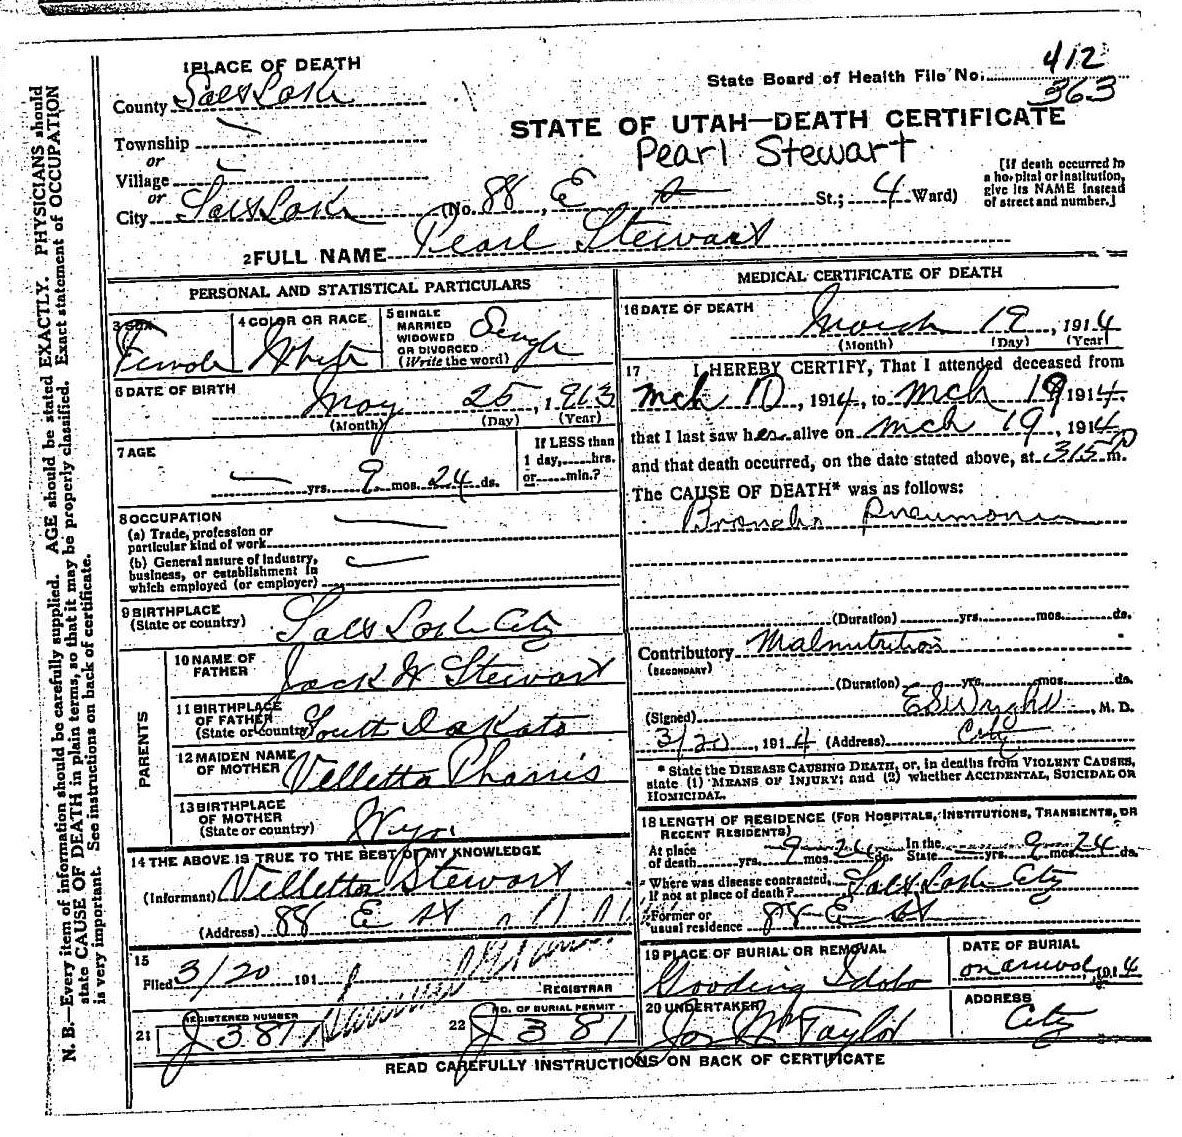 1 PLACE OF DEATH
County Salt Lake
Township
or
Village
or
City Salt Lake (No. 88, E St.; 4 Ward)
State Board of Health File No. 412
363
STATE OF UTAH—DEATH CERTIFICATE
Pearl Stewart
[If death occurred in
a hospital or institution,
give its NAME instead
of street and number.]
2 FULL NAME Pearl Stewart
PERSONAL AND STATISTICAL PARTICULARS
3 SEX
Female
4 COLOR OR RACE
White
5 SINGLE
MARRIED
WIDOWED
OR DIVORCED
(Write the word)
Single
6 DATE OF BIRTH
May 25, 1913
(Month) (Day) (Year)
7 AGE
— yrs. 9 mos. 24 ds.
If LESS than
1 day,.....hrs.
or.....min.?
8 OCCUPATION
(a) Trade, profession or
particular kind of work
(b) General nature of industry,
business, or establishment in
which employed (or employer)
9 BIRTHPLACE
(State or country)
Salt Lake City
PARENTS
10 NAME OF
FATHER
Jack W Stewart
11 BIRTHPLACE
OF FATHER
(State or country)
South Dakota
12 MAIDEN NAME
OF MOTHER
Velletta Pharris
13 BIRTHPLACE
OF MOTHER
(State or country)
Wyo.
14 THE ABOVE IS TRUE TO THE BEST OF MY KNOWLEDGE
(Informant) Velletta Stewart
(Address) 88 E St
15
Filed 3/20 191
REGISTRAR
21 REGISTERED NUMBER
J 387
22 NO. OF BURIAL PERMIT
J 381
MEDICAL CERTIFICATE OF DEATH
16 DATE OF DEATH
March 19, 1914
(Month) (Day) (Year)
17 I HEREBY CERTIFY, That I attended deceased from
Mch 10, 1914, to Mch 19 1914.
that I last saw her alive on Mch 19, 1914
and that death occurred, on the date stated above, at 315 P m.
The CAUSE OF DEATH* was as follows:
Broncho Pneumonia
(Duration) yrs. mos. ds.
Contributory Malnutrition
(SECONDARY)
(Duration) yrs. mos. ds.
(Signed) E S Wright, M. D.
3/20, 1914 (Address) City
* State the DISEASE CAUSING DEATH, or, in deaths from VIOLENT CAUSES,
state (1) MEANS OF INJURY; and (2) whether ACCIDENTAL, SUICIDAL OR
HOMICIDAL.
18 LENGTH OF RESIDENCE (FOR HOSPITALS, INSTITUTIONS, TRANSIENTS, OR
RECENT RESIDENTS)
At place
of death yrs. 9 mos. 24 ds. In the
State yrs. 9 mos. 24 ds.
Where was disease contracted,
if not at place of death? Salt Lake City
Former or
usual residence 88 E St
19 PLACE OF BURIAL OR REMOVAL
Gooding Idaho
DATE OF BURIAL
on arrival, 1914
20 UNDERTAKER
Jos Wm Taylor
ADDRESS
City
READ CAREFULLY INSTRUCTIONS ON BACK OF CERTIFICATE
N. B.—Every item of information should be carefully supplied. AGE should be stated EXACTLY. PHYSICIANS should
state CAUSE OF DEATH in plain terms, so that it may be properly classified. Exact statement of OCCUPATION
is very important. See instructions on back of certificate.